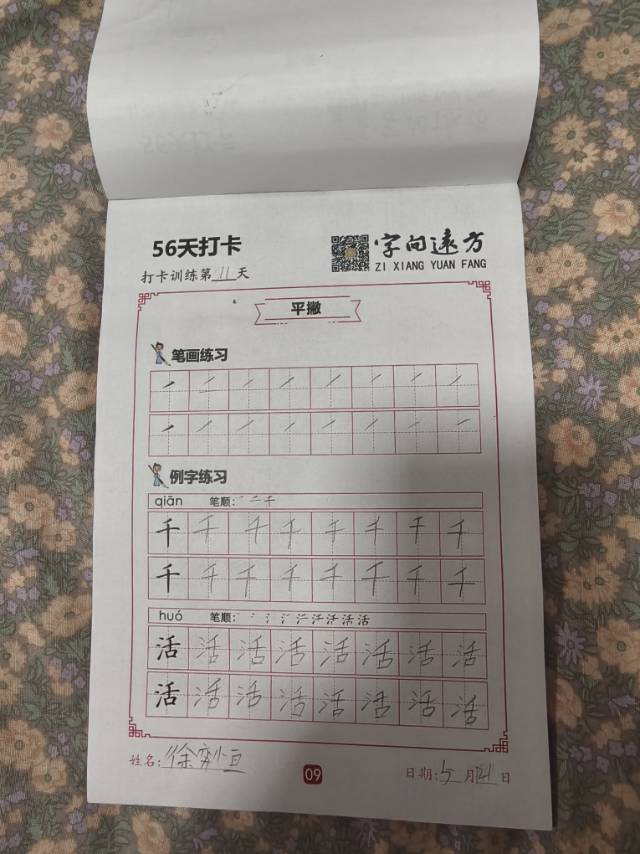 56天打卡
字向遠方
ZI XIANG YUAN FANG
打卡训练第11天
平撇
笔画练习
例字练习
qiān 笔顺: 一 二 千
千 千 千 千 千 千 千 千
千 千 千 千 千 千 千 千
huó 笔顺:
活 活 活 活 活 活 活 活
活 活 活 活 活 活 活 活
姓名:徐
日期:5月 日
09